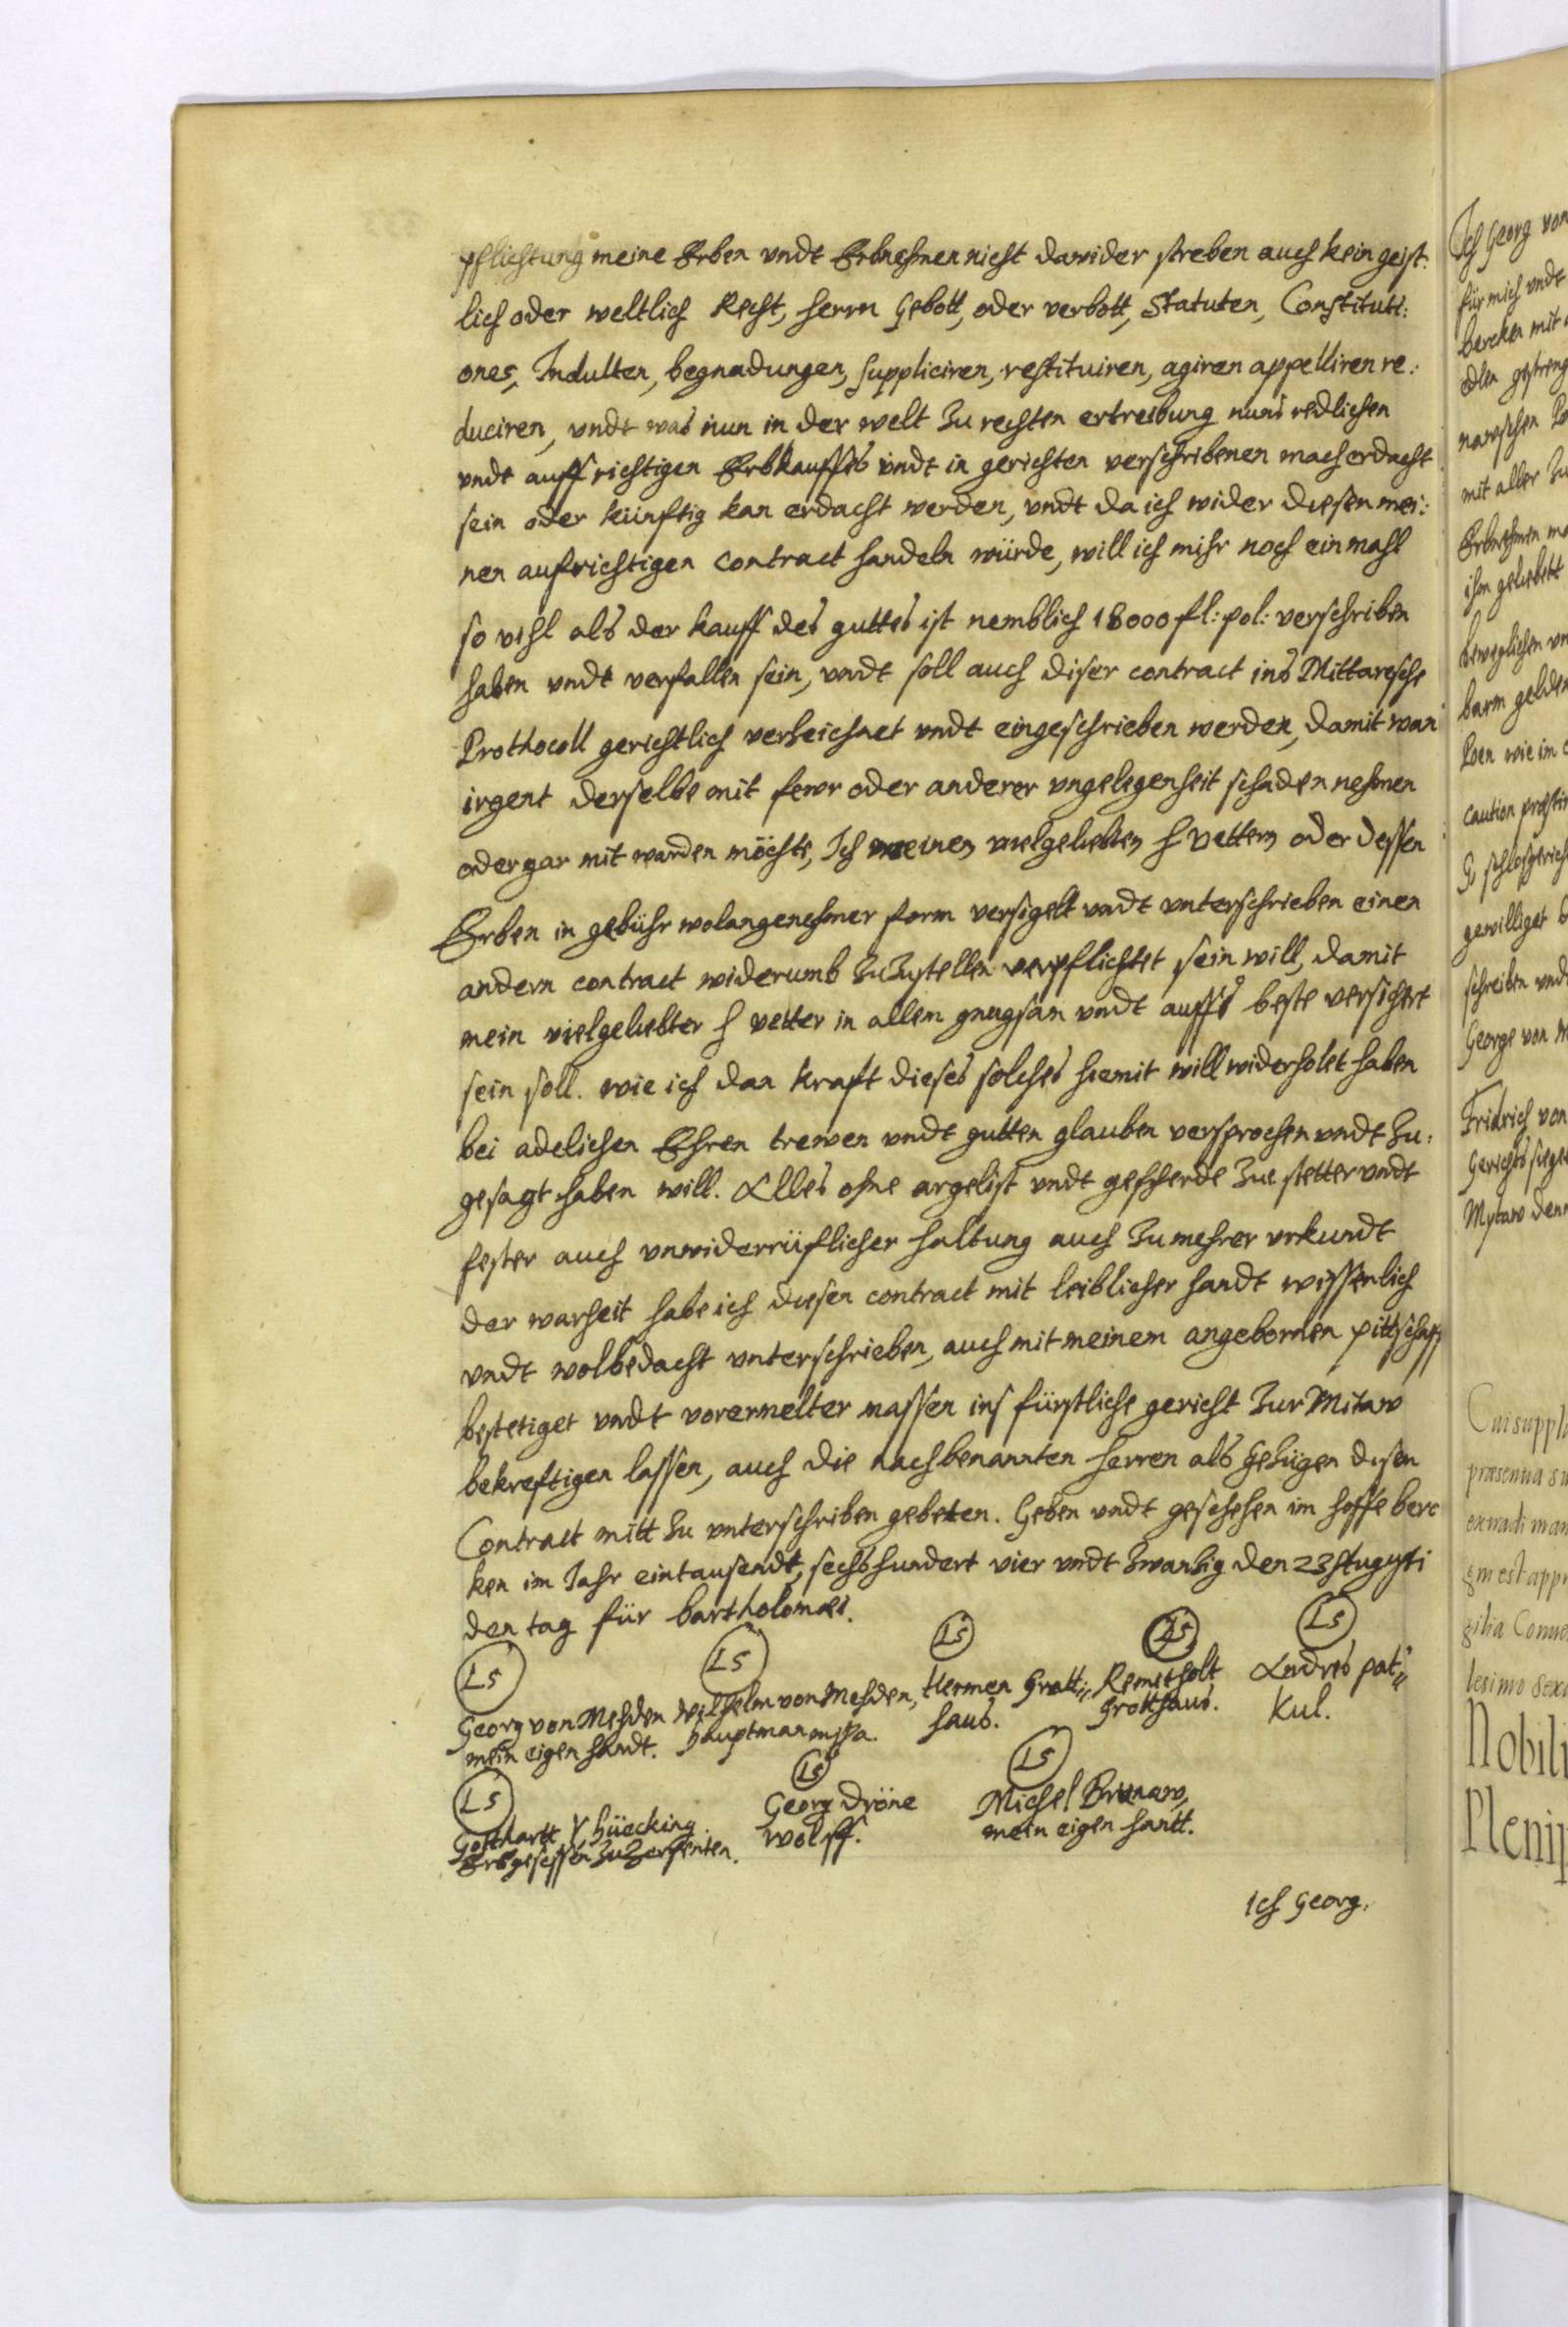 pflichtung meine Erben vndt Erbnehmen nicht darwider streben auch kein geist:
lich oder weltlich Recht, herrn Gebott, oder verbott, Statuten, Constituti:
ones, Indulten, begnadungen, suppliciren, restituiren, agiren appelliren re:
duciren, vndt was nun in der welt Zu rechten ertreibung nuns redlichen
vndt auffrichtigen Erbkauffes vndt in gerichten verschribenen mach erdacht
sein oder künftig kan erdacht werden, vndt da ich wider diesen mei:
nen aufrichtigen contract handeln würde, will ich mihr noch ein mahl
so vihl als der kauff des guttes ist nemblich 18000 fl: pol: verschriben
haben vndt verfallen sein, vndt soll auch diser contract ins Mittawsche
Prothocoll gerichtlich verzeichnet vndt eingeschrieben werden, damit wan
irgent derselbe mit fewr oder anderer vngelegenheit schaden nehmen
oder gar mit warden möchte, Ich meinen vielgeliebten H Vettern oder dessen
Erben in gebühr wolangenehmer form versigelt vndt vnterschrieben einen
andern contract widerumb Zu Zustellen verpflichtet sein will, damit
mein vielgeliebter H vetter in allem gnugsam vndt auffs beste versichert
sein soll. wie ich dan kraft dieses solches hiemit will widerholet haben
bei adelichen Ehren trewen vndt gutten glauben versprochen vndt Zu:
gesagt haben will. Alles ohne argelist vndt gefherde Zue stetter vndt
fester auch vnwiderrüflicher haltung auch Zu mehrer vrkundt
der warheit habe ich diesen contract mit leiblicher handt wissenlich
vndt wolbedacht vnterschrieben, auch mit meinem angebornen pittschaff
bestetiget vndt vorermelter massen ins fürstliche gericht Zur Mitaw
bekreftigen lassen, auch die nachbenannten herren als Gezügen disen
Contract mitt Zu vnterschriben gebeten. Geben vndt geschehen im hoffe berc
ken im Jahr eintausendt, sechshundert vier vndt Zwanzig den 23 Augusti
den tag für bartholomæi.
LS LS LS LS LS
Georg von Mehden Wilhelm von Mehden, Hermen Grott: Remetholt Andres pat:
mein eigen handt. hauptman mppa. haus. Grotthaus. Kul.
LS LS LS
Gotthartt V hüecking Georg dröne Michel Brunaw,
Erbgesessen Zu Zerfenten. Wolff. mein eigen hantt.
Ich Georg.
Ich Georg von
für mich vndt
bercken mit
edlen gestreng
nawschen
mit aller Zu
Erbnehmen
ihm geliebett
beweglichen
barm gelden
wie im
caution
schlosgerich
gewilliget
schreiben vndt
George von M
Fridrich von
Gerichts siegel
Mytaw den
Cui suppl
præsentia
extradi man
gm est appr
gilia Conver
lesimo sex
Nobili
Plenip